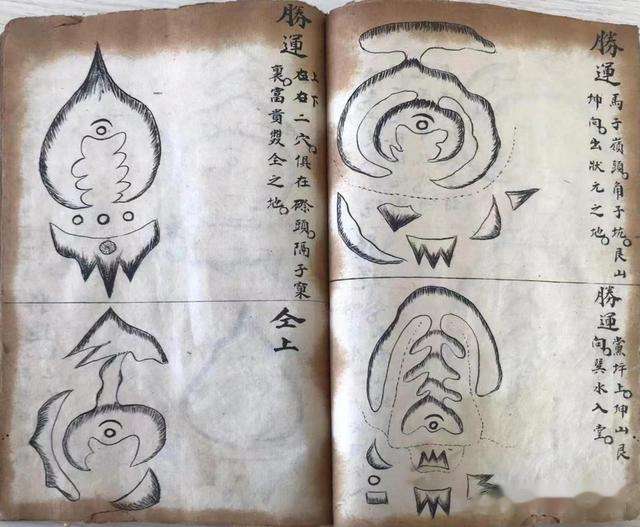 勝運
馬子嶺頭角子坑艮山
坤向出狀元之地
勝運
黨坪上坤山艮
向巽水入堂
勝運
上下
在右二穴俱在磜頭隔子窠
裏富貴雙全之地
仝上